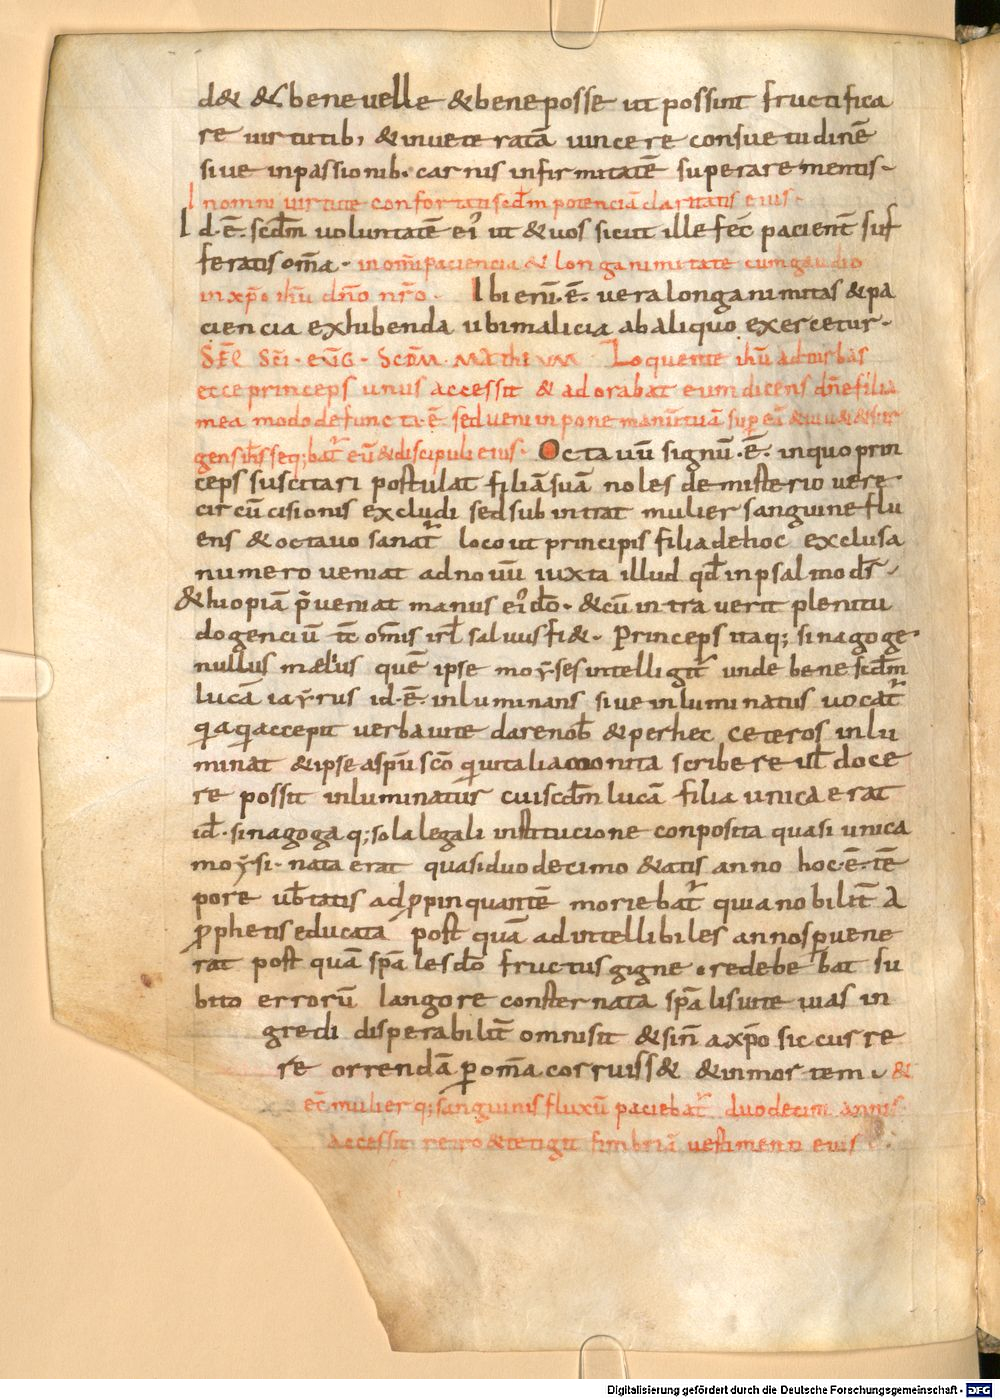 d& & bene uelle & bene posse ut possint fructifica
re uirtutib; & inueteratā uincere consuetudinē
siue in passionib. carnis infirmitatē superare mentis.
In omni uirtute confortati scdm potenciā claritatis eius.
Id.ē. scdm uoluntatē ei ut & uos sicut ille fec pacient suf
feratis oma. in omi paciencia & longanimitate cum gaudio
in xpo ihu dno nro. Ibi eni.ē. uera longanimitas & pa
ciencia exhibenda ubi malicia ab aliquo exercetur.
SEQ SCI. EUG. SCDM. MATHEUM. Loquente ihu ad turbas
ecce princeps unus accessit & adorabat eum dicens dne filia
mea modo defuncta.ē. sed ueni inpone manū tuā sup eā & uiu& & sur
gens ihs seq;bat eū & discipuli eius. Octauū signū.ē. in quo prin
ceps suscitari postulat filiā suā noles de misterio uere
circūcisionis excludi sed subintrat mulier sanguine flu
ens & octauo sanat loco ut principis filia de hoc exclusa
numero ueniat ad nouū iuxta illud qd in psalmo dr.
&hiopiā pueniat manus ei do. & cū intrauerit plenitu
do genciū tc omis irl saluus fi&. Princeps itaq; sinagoge
nullus melius quē ipse moyses intelligit unde bene scdm
lucā iayrus id.ē. inluminans siue inluminatus uocat
qia qi accepit uerba uite dare nob & per hec ceteros inlu
minat & ipse a spu sco qui talia monita scribere ul doce
re possit inluminatur cui scdm lucā filia unica erat
id. sinagoga q; sola legali institucione conposita quasi unica
moysi. nata erat quasi duodecimo &atis anno hoc.ē. tē
pore ubtatis adppinquantē moriebat quia nobilit a
pphetis educata post quā ad intellibiles annos puene
rat post quā spales do fructus gignere debebat su
bito errorū langore consternata spalis uite uias in
gredi disperabilit omnisit & sin a xpo siccurre
re orrendā p oma corruiss& & in mortem. &
ec mulier q; sanguinis fluxū paciebat duodecim annis
accessit retro & tetigit fimbriā uestimenti eius
Digitalisierung gefördert durch die Deutsche Forschungsgemeinschaft - DFG